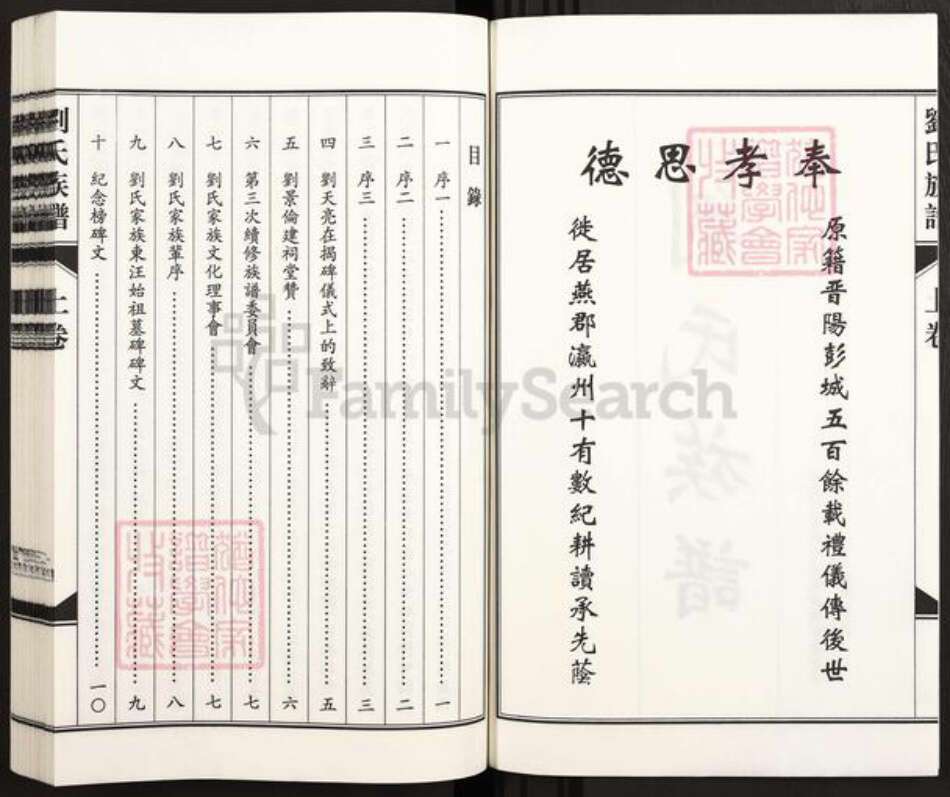 劉氏族譜
上卷
奉孝思德
原籍晋陽彭城五百餘載禮儀傳後世
徙居燕郡瀛州十有數紀耕讀承先蔭
目錄
一 序一 一
二 序二 二
三 序三 三
四 劉天亮在揭碑儀式上的致辭 五
五 劉景倫建祠堂贊 六
六 第三次續修族譜委員會 七
七 劉氏家族文化理事會 七
八 劉氏家族輩序 八
九 劉氏家族東汪始祖墓碑碑文 九
十 紀念榜碑文 一〇
劉氏族譜
上卷
FamilySearch